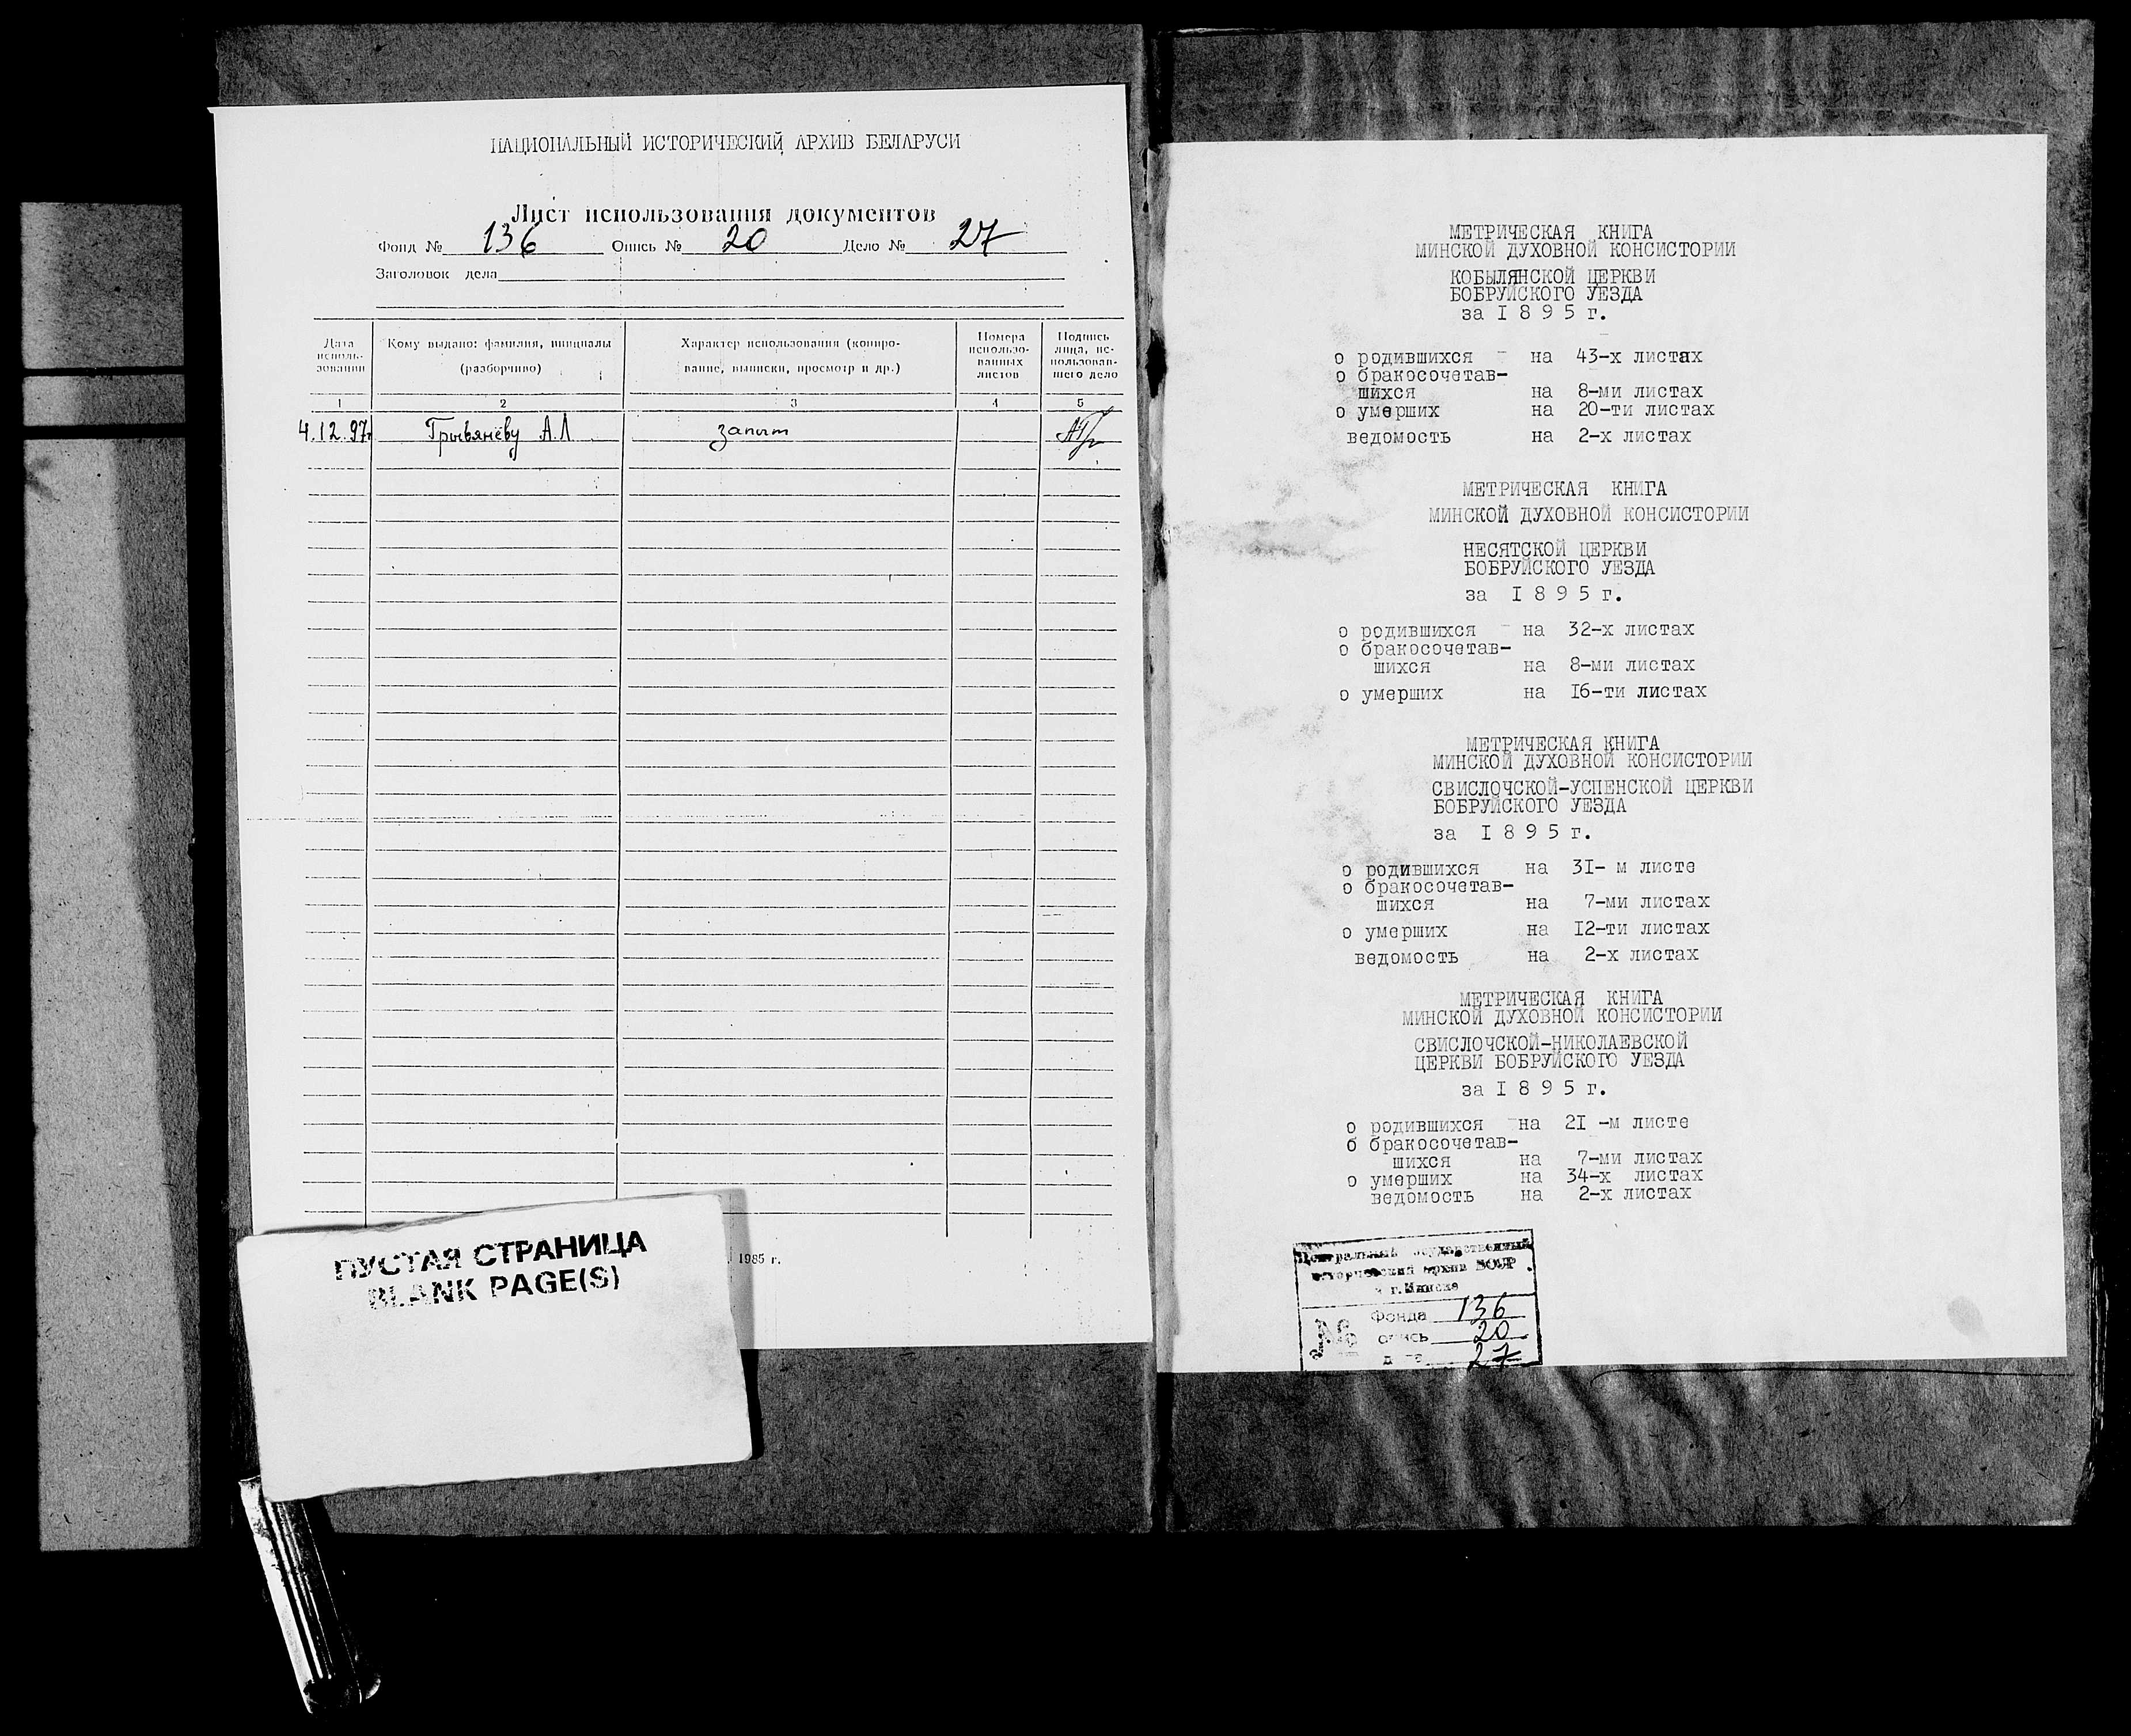 НАЦИОНАЛЬНЫЙ ИСТОРИЧЕСКИЙ АРХИВ БЕЛАРУСИ
Лист использования документов
Фонд № 136 Опись № 20 Дело № 27
Заголовок дела
Дата исполь-зования
Кому выдано: фамилия, инициалы (разборчиво)
Характер использования (копиро-вание, выписки, просмотр и др.)
Номера использо-ванных листов
Подпись лица, ис-пользовав-шего дело
1 2 3 4 5
4.12.97г А.Л. запыт
1985 г.
ПУСТАЯ СТРАНИЦА
BLANK PAGE(S)
МЕТРИЧЕСКАЯ КНИГА
МИНСКОЙ ДУХОВНОЙ КОНСИСТОРИИ
КОБЫЛЯНСКОЙ ЦЕРКВИ
БОБРУЙСКОГО УЕЗДА
за I 8 9 5 г.
о родившихся - на 43-х листах
о бракосочетав-
шихся на 8-ми листах
о умерших на 20-ти листах
ведомость на 2-х листах
МЕТРИЧЕСКАЯ КНИГА
МИНСКОЙ ДУХОВНОЙ КОНСИСТОРИИ
НЕСЯТСКОЙ ЦЕРКВИ
БОБРУЙСКОГО УЕЗДА
за I 8 9 5 г.
о родившихся - на 32-х листах
о бракосочетав-
шихся на 8-ми листах
о умерших на I6-ти листах
МЕТРИЧЕСКАЯ КНИГА
МИНСКОЙ ДУХОВНОЙ КОНСИСТОРИИ
СВИСЛОЧСКОЙ-УСПЕНСКОЙ ЦЕРКВИ
БОБРУЙСКОГО УЕЗДА
за I 8 9 5 г.
о родившихся на 3I- м листе
о бракосочетав-
шихся на 7-ми листах
о умерших на I2-ти листах
ведомость на 2-х листах
МЕТРИЧЕСКАЯ КНИГА
МИНСКОЙ ДУХОВНОЙ КОНСИСТОРИИ
СВИСЛОЧСКОЙ-НИКОЛАЕВСКОЙ
ЦЕРКВИ БОБРУЙСКОГО УЕЗДА
за I 8 9 5 г.
о родившихся -на 2I -м листе
б бракосочетав-
шихся на 7-ми листах
о умерших на 34-х листах
ведомость на 2-х листах
Центральный государственный
исторический архив БССР
в г.Минске
№ фонда 136
опись 20
27